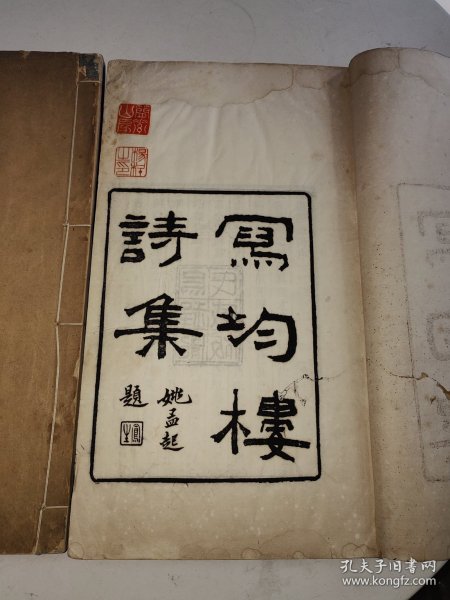 寫均樓
詩集
姚孟起
題
孔夫子旧书网
www.kongfz.com